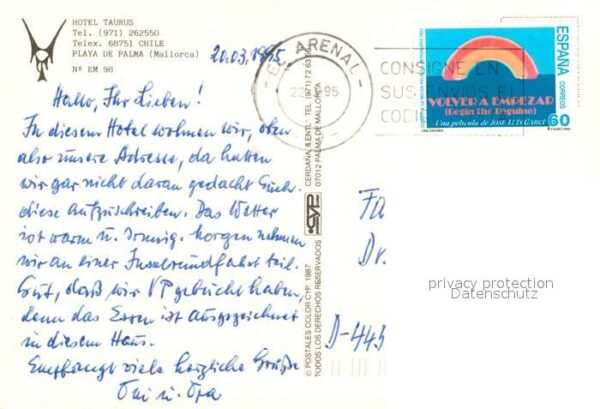 HOTEL TAURUS
Tel. (971) 262550
Telex. 68751 CHILE
PLAYA DE PALMA (Mallorca)
Nº EM 98
20.03.1995
Hallo, Ihr Lieben!
In diesem Hotel wohnen wir, oben
also unsere Adresse, da hatten
wir gar nicht daran gedacht Euch
diese aufzuschreiben. Das Wetter
ist warm u. sonnig. Morgen nehmen
wir an einer Inselrundfahrt teil.
Gut, daß wir VP gebucht haben,
denn das Essen ist ausgezeichnet
in diesem Haus.
Empfangt viele herzliche Grüße
Omi u. Opa
© POSTALES COLOR CYP, 1987
TODOS LOS DERECHOS RESERVADOS
CYP
CERDAÑA
07012 PALMA DE MALLORCA
EL ARENAL
95
CONSIGNE EN
SUS ENVIOS EL
CODI
ESPAÑA
CORREOS
VOLVER A EMPEZAR
(Begin the Beguine)
Una película de JOSE LUIS GARCI
60
Fa
Dr.
D-445
privacy protection
Datenschutz